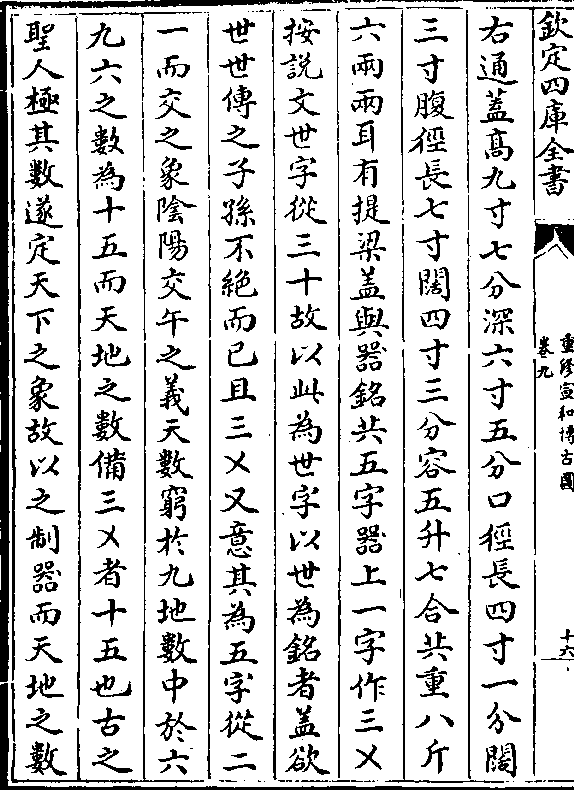 欽定四庫全書
重修宣和博古圖
卷九
十六
右通蓋髙九寸七分深六寸五分口徑長四寸一分闊
三寸腹徑長七寸闊四寸三分容五升七合共重八斤
六兩兩耳有提梁蓋與器銘共五字器上一字作三㐅
按說文世字從三十故以此為世字以世為銘者蓋欲
世世傳之子孫不絶而已且三㐅又意其為五字從二
一而交之象陰陽交午之義天數窮於九地數中於六
九六之數為十五而天地之數備三㐅者十五也古之
聖人極其數遂定天下之象故以之制器而天地之數